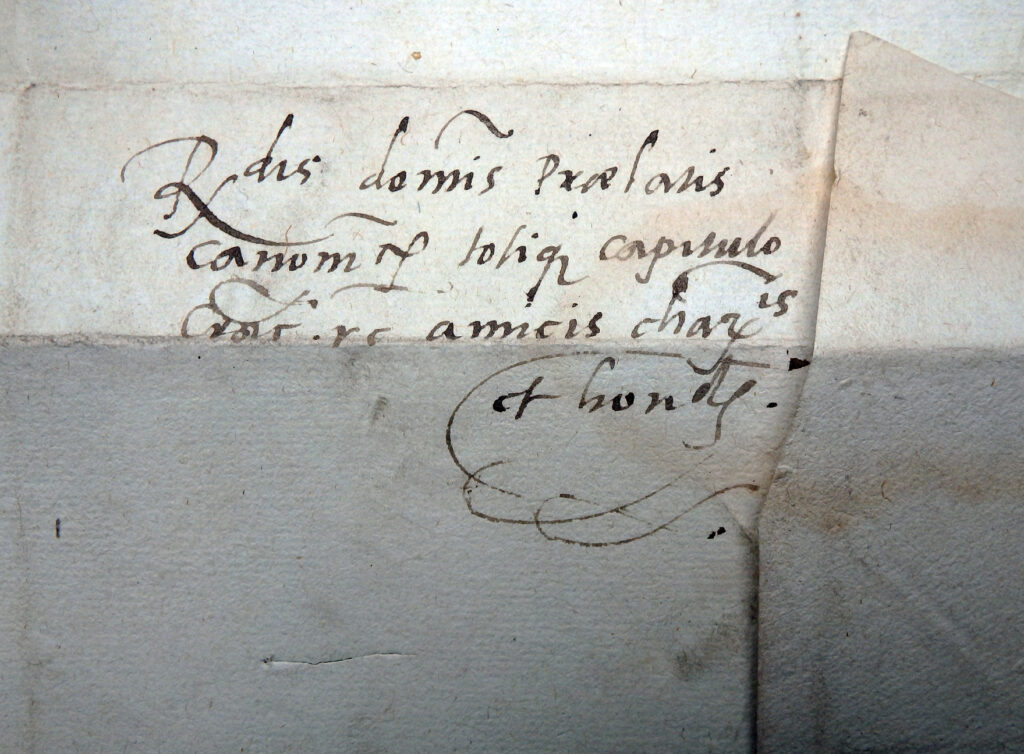 Rdis dom̃is Prælatis
canom̃cꝭ totiq capitulo
Crac. amicis charis
et hondꝭ.